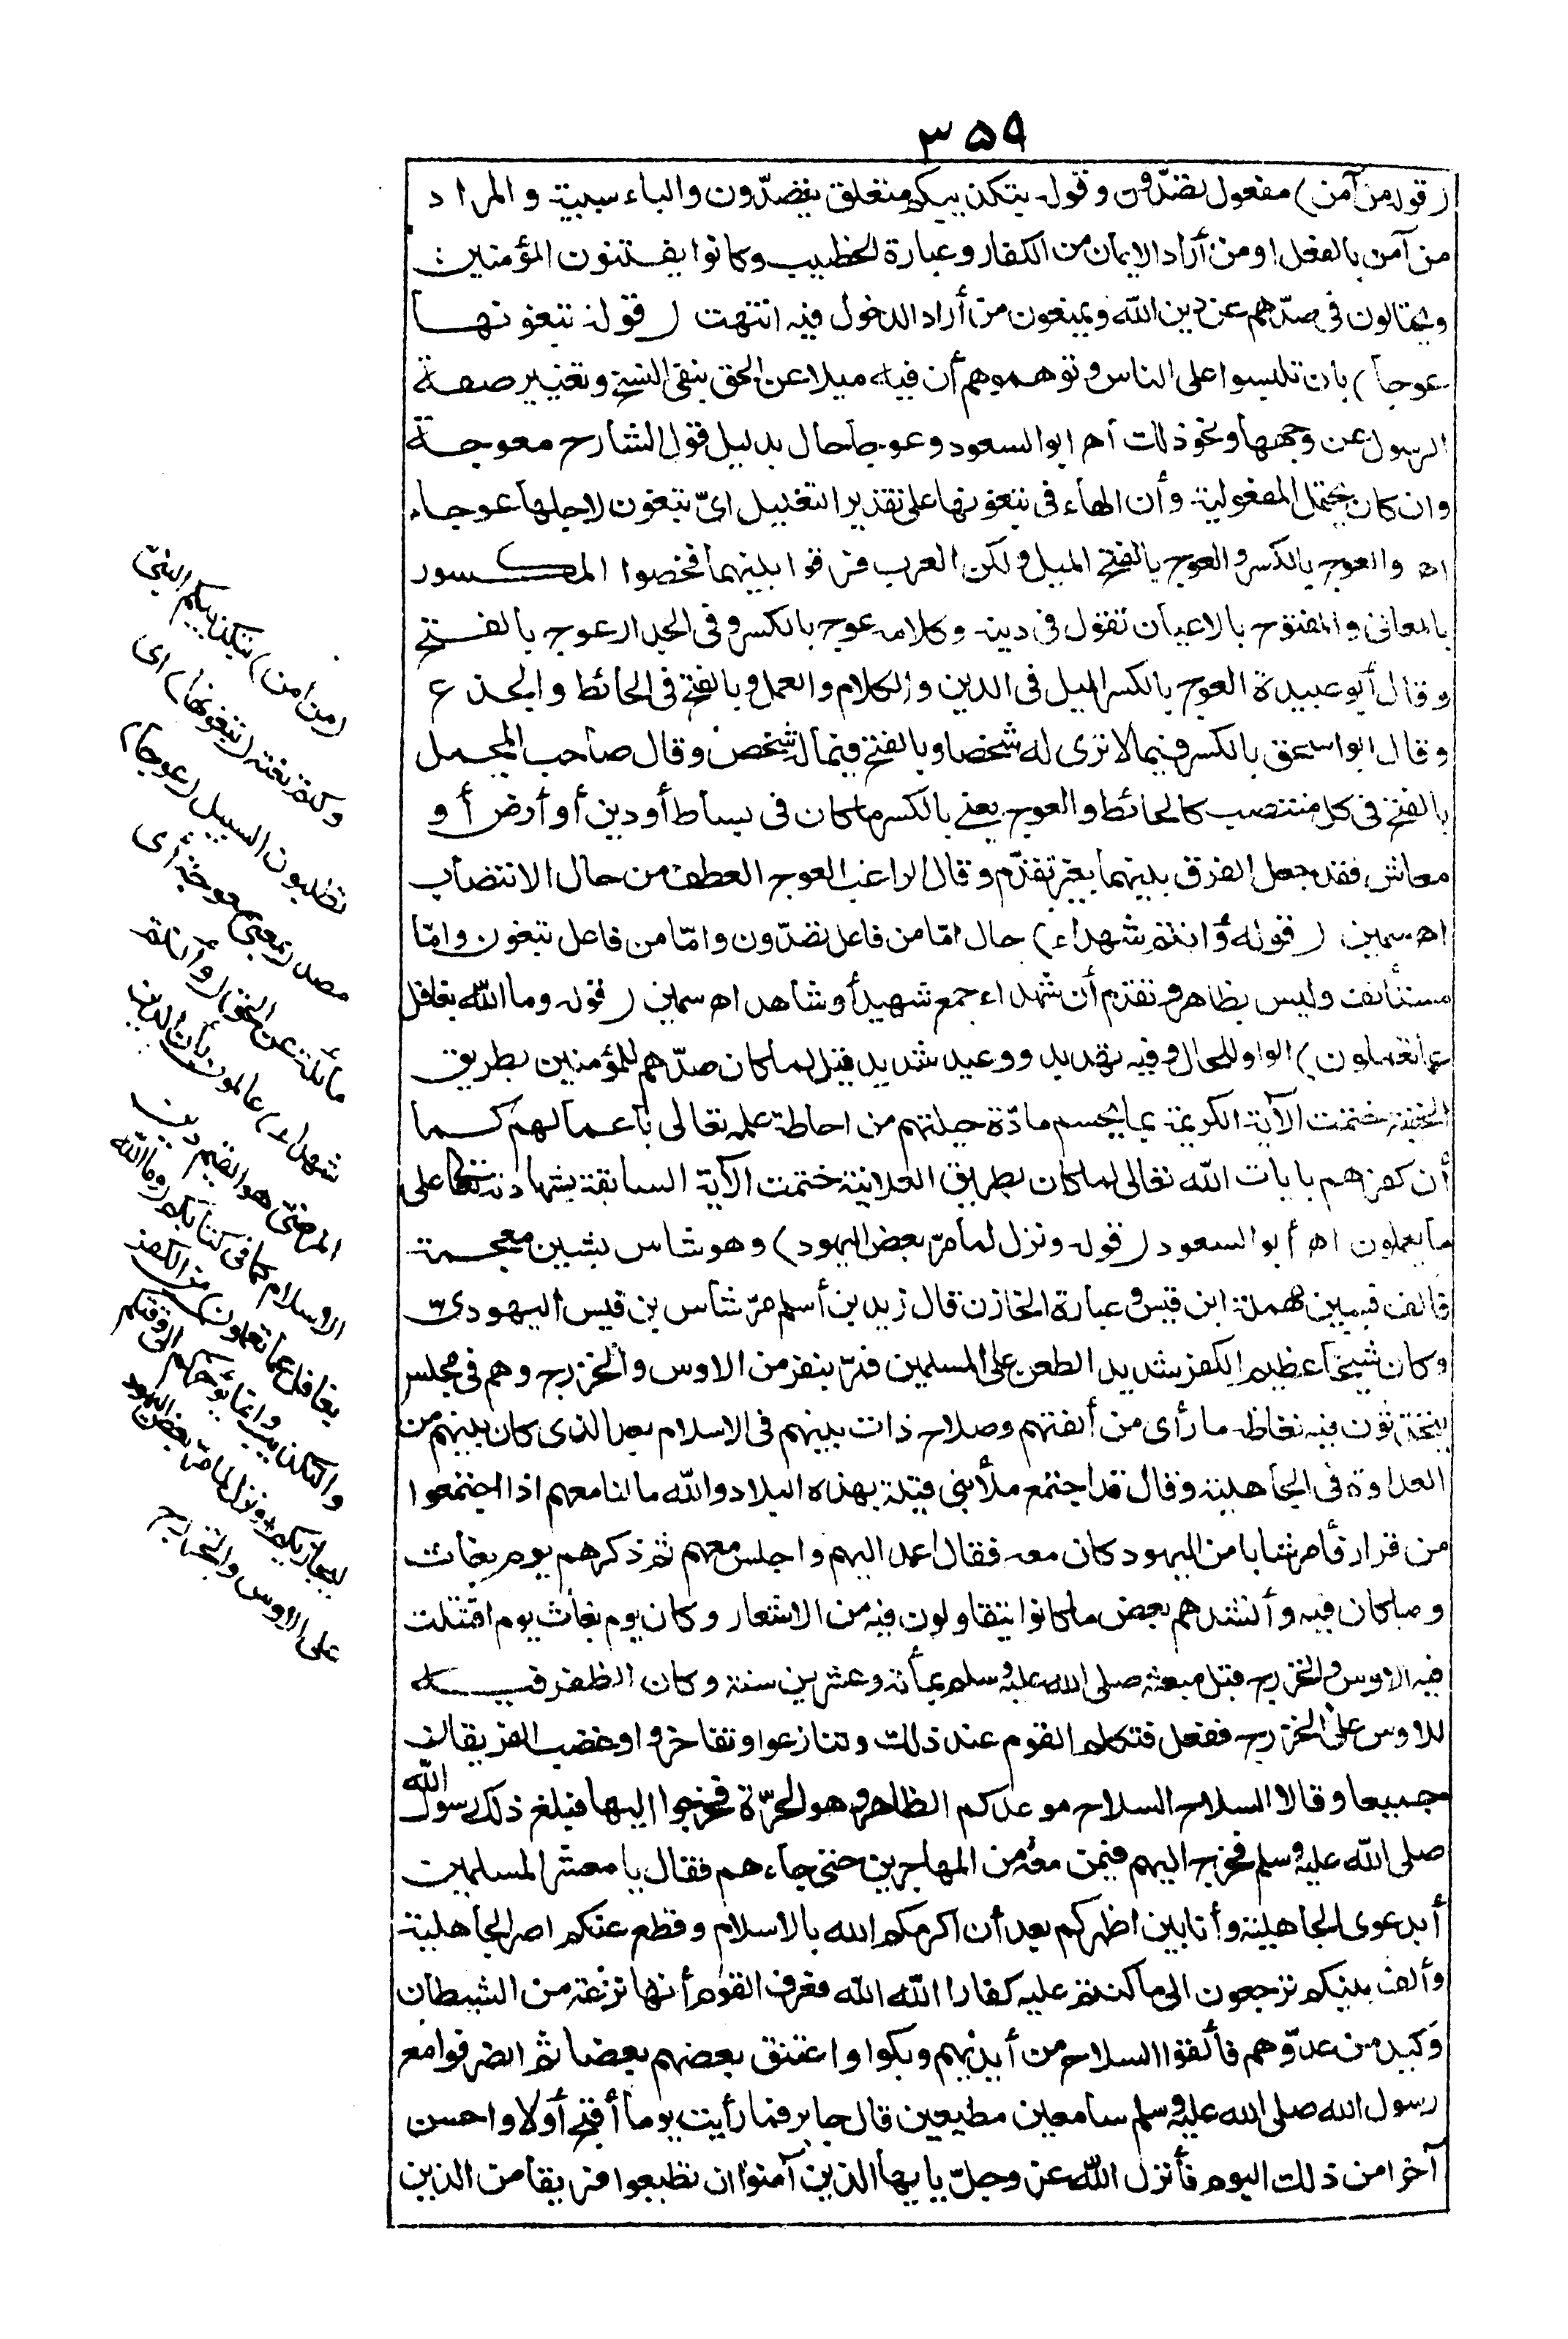 ٣٥٩
(قوله من آمن) مفعول تصدّون وقوله بتكذيبكم متعلق بتصدّون والباء سببية والمراد
من آمن بالفعل او من أراد الايمان من الكفار وعبارة الخطيب وكانوا يفتنون المؤمنين
ويحتالون فى صدّهم عن دين الله ويمنعون من أراد الدخول فيه انتهت (قوله تبغونها
عوجا) بان تلبسوا على الناس وتوهموهم أن فيه ميلا عن الحق بنفى النسخ وتغيير صفة
الرسول عن وجهها ونحو ذلك اه ابوالسعود وعوجا حال بدليل قول الشارح معوجة
وان كان يحتمل المفعولية وأن الهاء فى تبغونها على تقدير التعليل اى تبغون لاجلها عوجا
اه والعوج بالكسر والعوج بالفتح الميل ولكن العرب فرقوا بينهما فخصوا المكسور
بالمعانى والمفتوح بالاعيان تقول فى دينه وكلامه عوج بالكسر وفى الجدار عوج بالفتح
وقال أبو عبيدة العوج بالكسر الميل فى الدين والكلام والعمل وبالفتح فى الحائط والجذع
وقال ابو اسحق بالكسر فيما لا ترى له شخصا وبالفتح فيما له شخص وقال صاحب المجمل
بالفتح فى كل منتصب كالحائط والعوج يعنى بالكسر ما كان فى بساط أو دين أو أرض أو
معاش فقد جعل الفرق بينهما بغير ما تقدّم وقال الراغب العوج العطف من حال الانتصاب
اه سمين (قوله وأنتم شهداء) حال امّا من فاعل تصدّون وامّا من فاعل تبغون وامّا
مستأنف وليس بظاهر وتقدم أن شهداء جمع شهيد أو شاهد اه سمين (قوله وما الله بغافل
عما تعملون) الواو للحال وفيه تهديد ووعيد شديد قيل لما كان صدّهم للمؤمنين بطريق
الخفية ختمت الآية الكريمة بما يحسم مادّة حيلتهم من احاطة علمه تعالى بأعمالهم كما
أن كفرهم بآيات الله تعالى لما كان بطريق العلانية ختمت الآية السابقة بشهادته تعالى على
ما يعملون اه أبو السعود (قوله ونزل لما مرّ بعض اليهود) وهو شاس بشين معجمة
فألف فسين مهملة ابن قيس وعبارة الخازن قال زيد بن أسلم مرّ شاس بن قيس اليهودىّ
وكان شيخا عظيم الكفر شديد الطعن على المسلمين فمرّ بنفر من الاوس والخزرج وهم فى مجلس
يتحدّثون فيه فغاظه ما رأى من ألفتهم وصلاح ذات بينهم فى الاسلام بعد الذى كان بينهم من
العداوة فى الجاهلية وقال قد اجتمع ملأ بنى قيلة بهذه البلاد والله ما لنا معهم اذا اجتمعوا
من قرار فأمر شابا من اليهود كان معه فقال اعمد اليهم واجلس معهم ثم ذكرهم يوم بغاث
وما كان فيه وأنشدهم بعض ما كانوا يتقاولون فيه من الاشعار وكان يوم بغاث يوم اقتتلت
فيه الاوس والخزرج قبل مبعثه صلى الله عليه وسلم بمائة وعشرين سنة وكان الظفر فيه
للاوس على الخزرج ففعل فتكلم القوم عند ذلك وتنازعوا وتفاخروا وغضب الفريقان
جميعا وقالا السلاح السلاح موعدكم الظاهرة وهو الحرّة فخرجوا اليها فبلغ ذلك رسول الله
صلى الله عليه وسلم فخرج اليهم فيمن معه من المهاجرين حتى جاءهم فقال يا معشر المسلمين
أبدعوى الجاهلية وأنا بين اظهركم بعد أن اكرمكم الله بالاسلام وقطع عنكم امر الجاهلية
وألف بينكم ترجعون الى ما كنتم عليه كفارا الله الله فعرف القوم أنها نزغة من الشيطان
وكيد من عدوّهم فألقوا السلاح من أيديهم وبكوا واعتنق بعضهم بعضا ثم انصرفوا مع
رسول الله صلى الله عليه وسلم سامعين مطيعين قال جابر فما رأيت يوما أقبح أولا واحسن
آخرا من ذلك اليوم فأنزل الله عز وجلّ يا يها الذين آمنوا ان تطيعوا فريقا من الذين
(من آمن) بتكذيبكم النبىّ
وكتم نعته (تبغونها) اى
تطلبون السبيل (عوجا)
مصدر بمعنى معوجّة أى
مائلة عن الحق (وأنتم
شهداء) عالمون بأن الدين
المرضىّ هو القيم دين
الاسلام كما فى كتابكم (وما الله
بغافل عما تعملون) من الكفر
والتكذيب وانما يؤخركم الى وقتكم
ليجازيكم ونزل لما مرّ بعض اليهود
على الاوس والخزرج